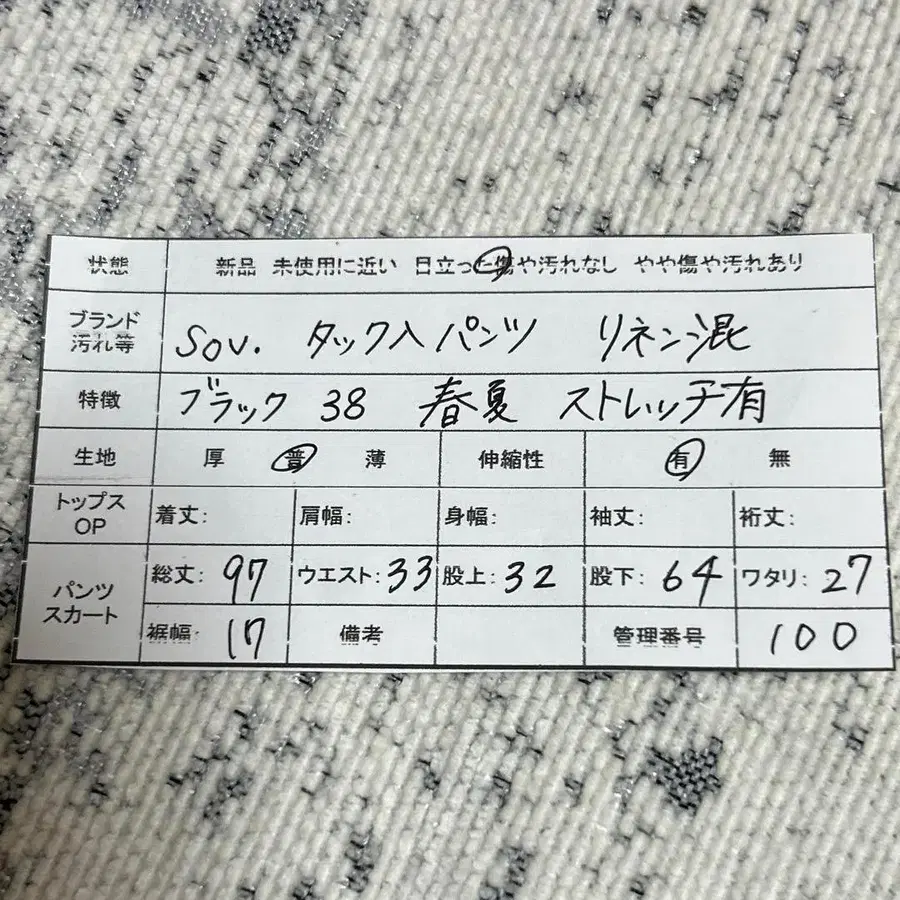 状態 新品 未使用に近い 目立った傷や汚れなし やや傷や汚れあり
ブランド 汚れ等 sov. タック入パンツ リネン混
特徴 ブラック 38 春夏 ストレッチ有
生地 厚 普 薄 伸縮性 有 無
トップス OP 着丈: 肩幅: 身幅: 袖丈: 裄丈:
パンツ スカート 総丈: 97 ウエスト: 33 股上: 32 股下: 64 ワタリ: 27
裾幅: 17 備考 管理番号 100